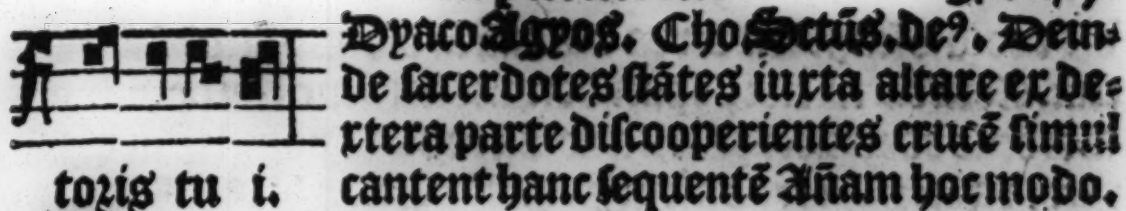 Dyaco Agyos. Cho Sctūs. deꝰ. Dein⸗
de sacerdotes stātes iuxta altare ex de⸗
xtera parte discooperientes crucē simul
toris tu i. cantent hanc sequentē Añam hoc modo.